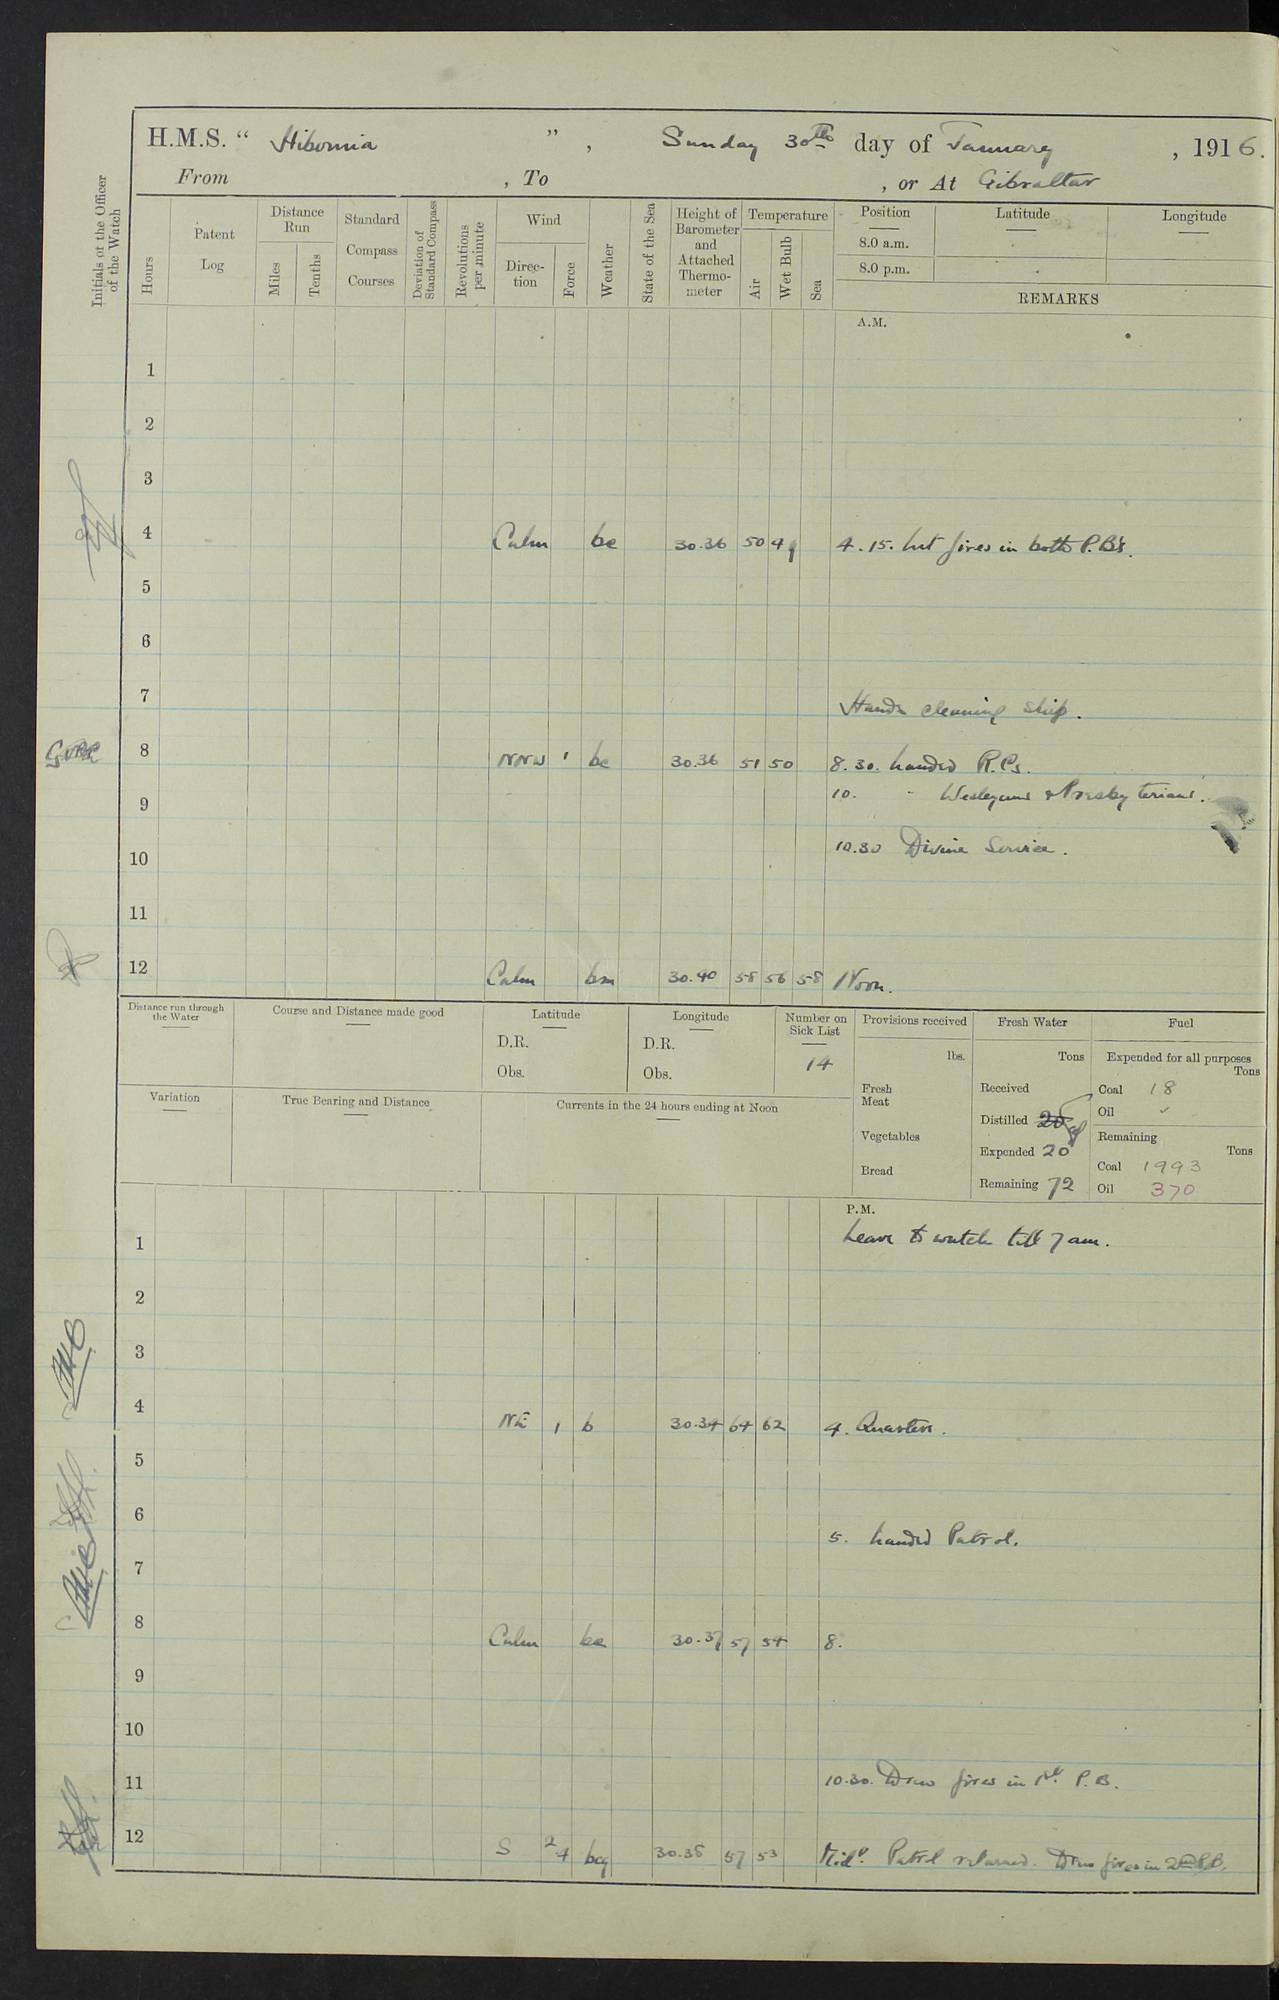 H.M.S. “ Hibernia ”, Sunday 30th day of January, 1916.
From , To , or At Gibraltar
Initials of the Officer of the Watch
Hours
Patent Log
Distance Run
Miles
Tenths
Standard Compass Courses
Deviation of Standard Compass
Revolutions per minute
Wind
Direction
Force
Weather
State of the Sea
Height of Barometer and Attached Thermometer
Temperature
Air
Wet Bulb
Sea
Position Latitude Longitude
8.0 a.m.
8.0 p.m.
REMARKS
A.M.
1
2
3
4 Calm bc 30.36 50 49 4.15. Lit fires in both P.B's.
5
6
7 Hands cleaning ship.
8 NNW 1 bc 30.36 51 50 8.30. Landed R.Cs.
9 10. " Wesleyans & Presbyterians.
10 10.30 Divine Service.
11
12 Calm bm 30.40 58 56 58 Noon.
Distance run through the Water
Course and Distance made good
Latitude
D.R.
Obs.
Longitude
D.R.
Obs.
Number on Sick List
14
Variation
True Bearing and Distance
Currents in the 24 hours ending at Noon
Provisions received
lbs.
Fresh Meat
Vegetables
Bread
Fresh Water
Tons
Received
Distilled 20
Expended 20
Remaining 72
Fuel
Expended for all purposes
Tons
Coal 18
Oil
Remaining
Tons
Coal 1993
Oil 370
P.M.
1 Leave to watch till 7 am.
2
3
4 NE 1 b 30.34 64 62 4. Quarters.
5
6 5. Landed Patrol.
7
8 Calm bc 30.37 57 54 8.
9
10
11 10.30. Drew fires in 1st P.B.
12 S 2-4 bcq 30.38 57 53 Midt. Patrol returned. Drew fires in 2nd P.B.